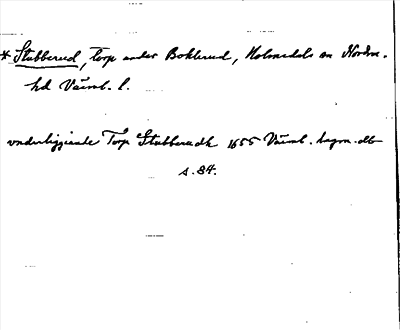 * Stubberud, torp under Bokerud, Holmedals sn Nordm.
hd Värml. l.
underliggiande Torp Stubberudh 1655 Värml. lagm. db
s. 84.